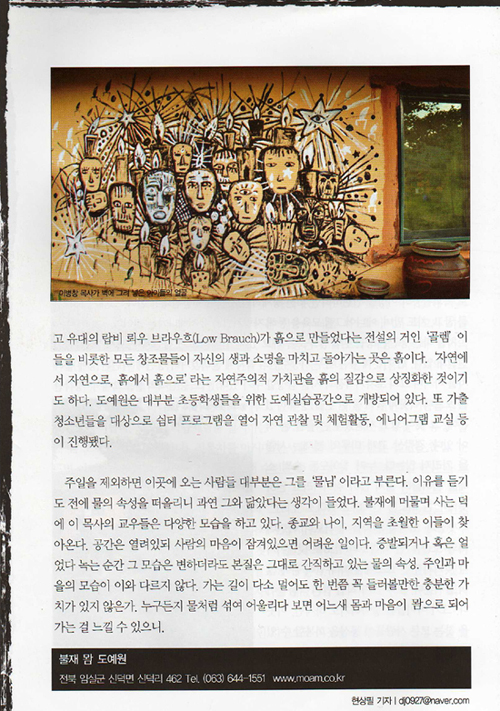 이병창 목사가 벽에 그려 넣은 아이들의 얼굴
고 유대의 랍비 뢰우 브라우흐(Low Brauch)가 흙으로 만들었다는 전설의 거인 '골렘' 이
들을 비롯한 모든 창조물들이 자신의 생과 소명을 마치고 돌아가는 곳은 흙이다. '자연에
서 자연으로, 흙에서 흙으로' 라는 자연주의적 가치관을 흙의 질감으로 상징화한 것이기
도 하다. 도예원은 대부분 초등학생들을 위한 도예실습공간으로 개방되어 있다. 또 가출
청소년들을 대상으로 쉼터 프로그램을 열어 자연 관찰 및 체험활동, 에니어그램 교실 등
이 진행됐다.
주일을 제외하면 이곳에 오는 사람들 대부분은 그를 '물님' 이라고 부른다. 이유를 듣기
도 전에 물의 속성을 떠올리니 과연 그와 닮았다는 생각이 들었다. 불재에 머물며 사는 덕
에 이 목사의 교우들은 다양한 모습을 하고 있다. 종교와 나이, 지역을 초월한 이들이 찾
아온다. 공간은 열려있되 사람의 마음이 잠겨있으면 어려운 일이다. 증발되거나 혹은 얼
었다 녹는 순간 그 모습은 변하더라도 본질은 그대로 간직하고 있는 물의 속성. 주인과 마
을의 모습이 이와 다르지 않다. 가는 길이 다소 멀어도 한 번쯤 꼭 들러볼만한 충분한 가
치가 있지 않은가. 누구든지 물처럼 섞여 어울리다 보면 어느새 몸과 마음이 뫔으로 되어
가는 걸 느낄 수 있으니.
불재 뫔 도예원
전북 임실군 신덕면 신덕리 462 Tel. (063) 644-1551 www.moam.co.kr
현상필 기자 | dj0927@naver.com